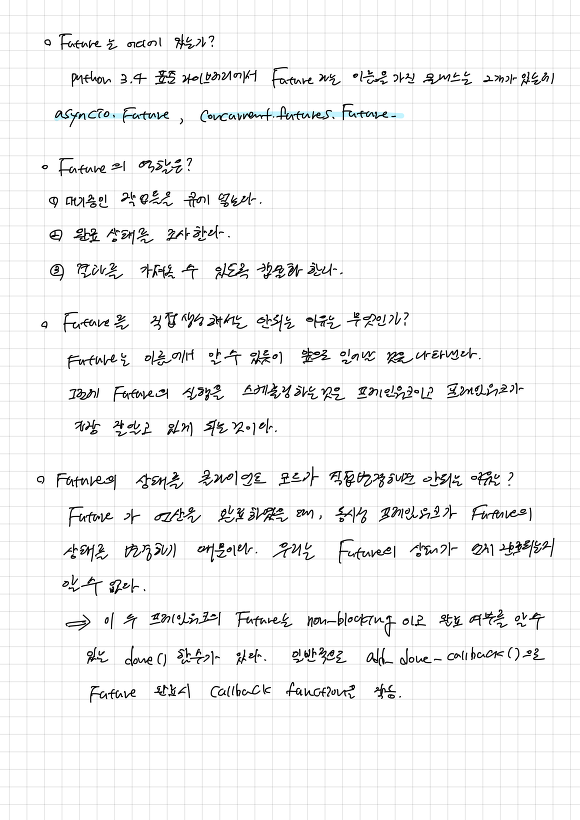 o Future는 어디에 있는가?
python 3.4 표준 라이브러리에서 Future 라는 이름을 가진 클래스는 2개가 있는데
asyncio. Future , concurrent.futures. Future_
o Future의 역할은?
① 대기중인 작업들을 큐에 넣는다.
② 완료 상태를 조사한다.
③ 결과를 가져올 수 있도록 캡슐화 한다.
o Future를 직접 생성해서는 안되는 이유는 무엇인가?
Future는 이름에서 알 수 있듯이 앞으로 일어날 것을 나타낸다.
Future의 실행을 스케줄링하는것은 프레임워크이고 프레임워크가
가장 잘알고 있게 되는것이다.
o Future의 상태를 클라이언트 코드가 직접변경하면 안되는 이유는?
Future 가 연산을 완료하였을 때, 동시성 프레임워크가 Future의
상태를 변경하기 때문이다. 우리는 Future의 상태가 언제 완료되는지
알 수 없다.
⇒ 이 두 프레임워크의 Future는 non-blocking 이고 완료 여부를 알 수
있는 done() 함수가 있다. 일반적으로 add_done_callback()으로
Future 완료시 callback function을 작동.